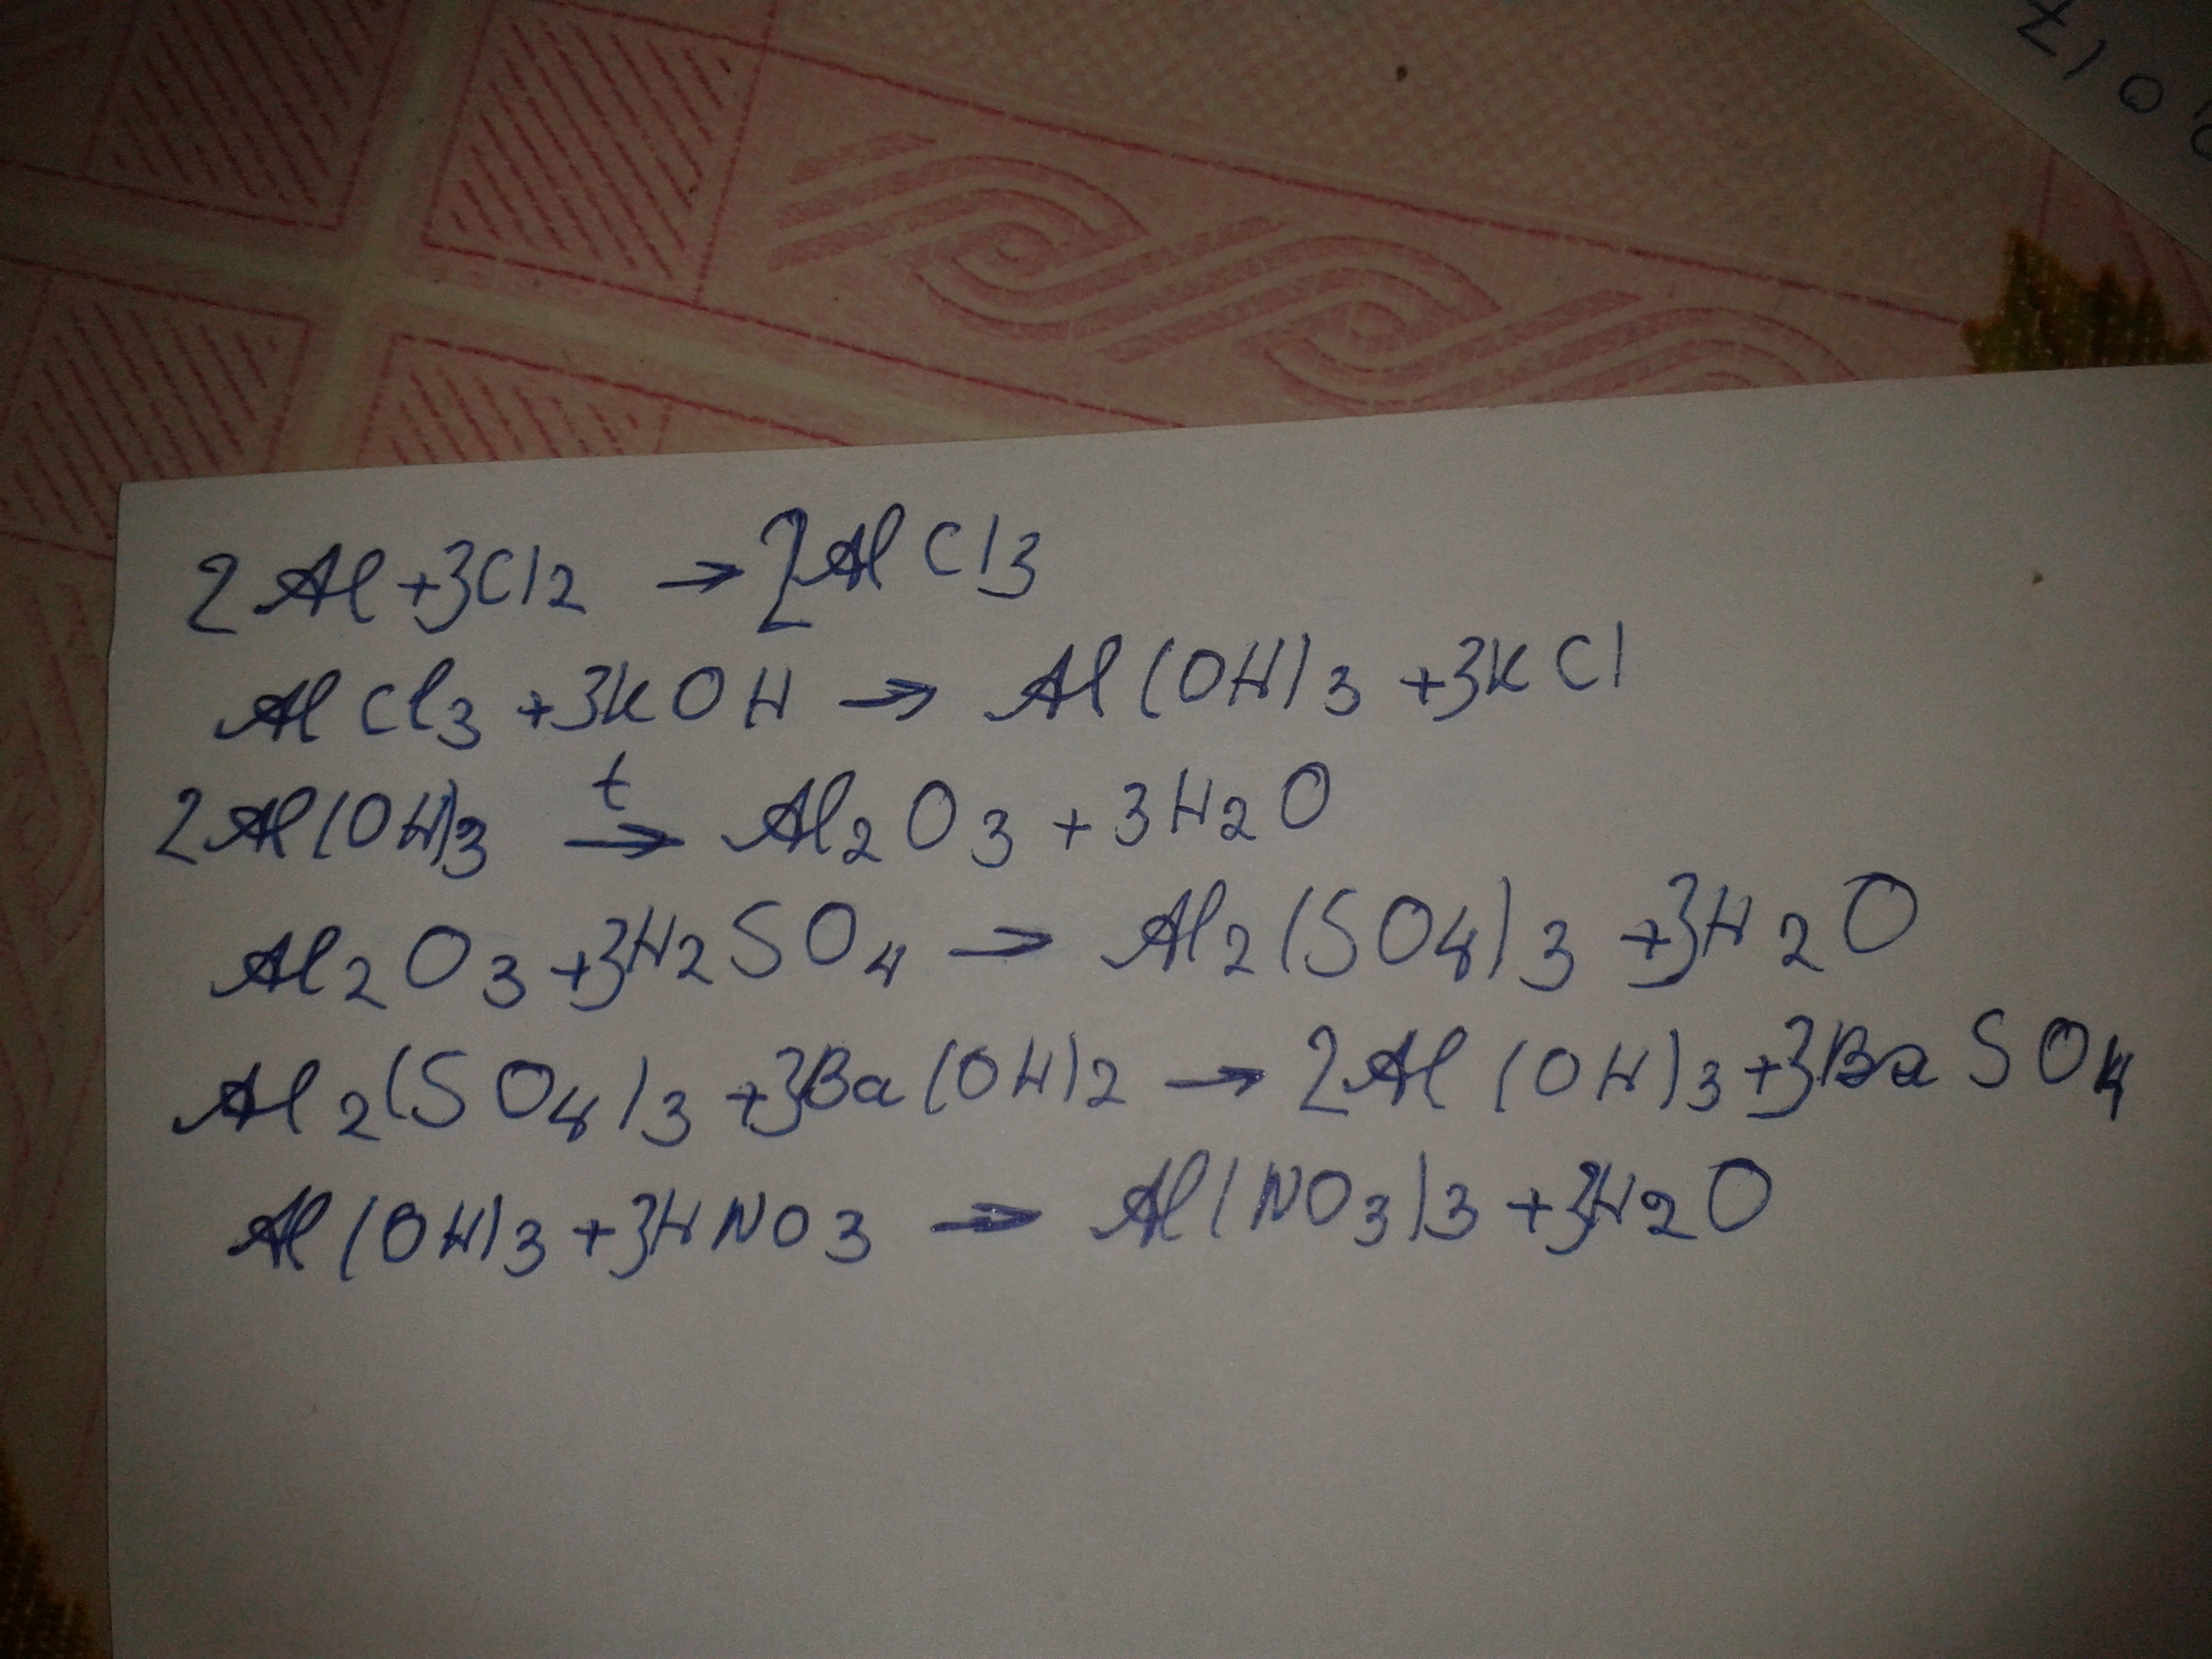 2Al+3Cl2 → 2AlCl3
AlCl3 +3KOH → Al(OH)3 +3KCl
2Al(OH)3 t→ Al2O3 + 3H2O
Al2O3+3H2SO4 → Al2(SO4)3 +3H2O
Al2(SO4)3 +3Ba(OH)2 → 2Al(OH)3+3BaSO4
Al(OH)3+3HNO3 → Al(NO3)3 +3H2O